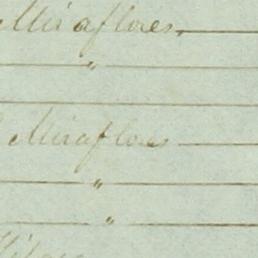 Miraflores.
"
Miraflores
"
"